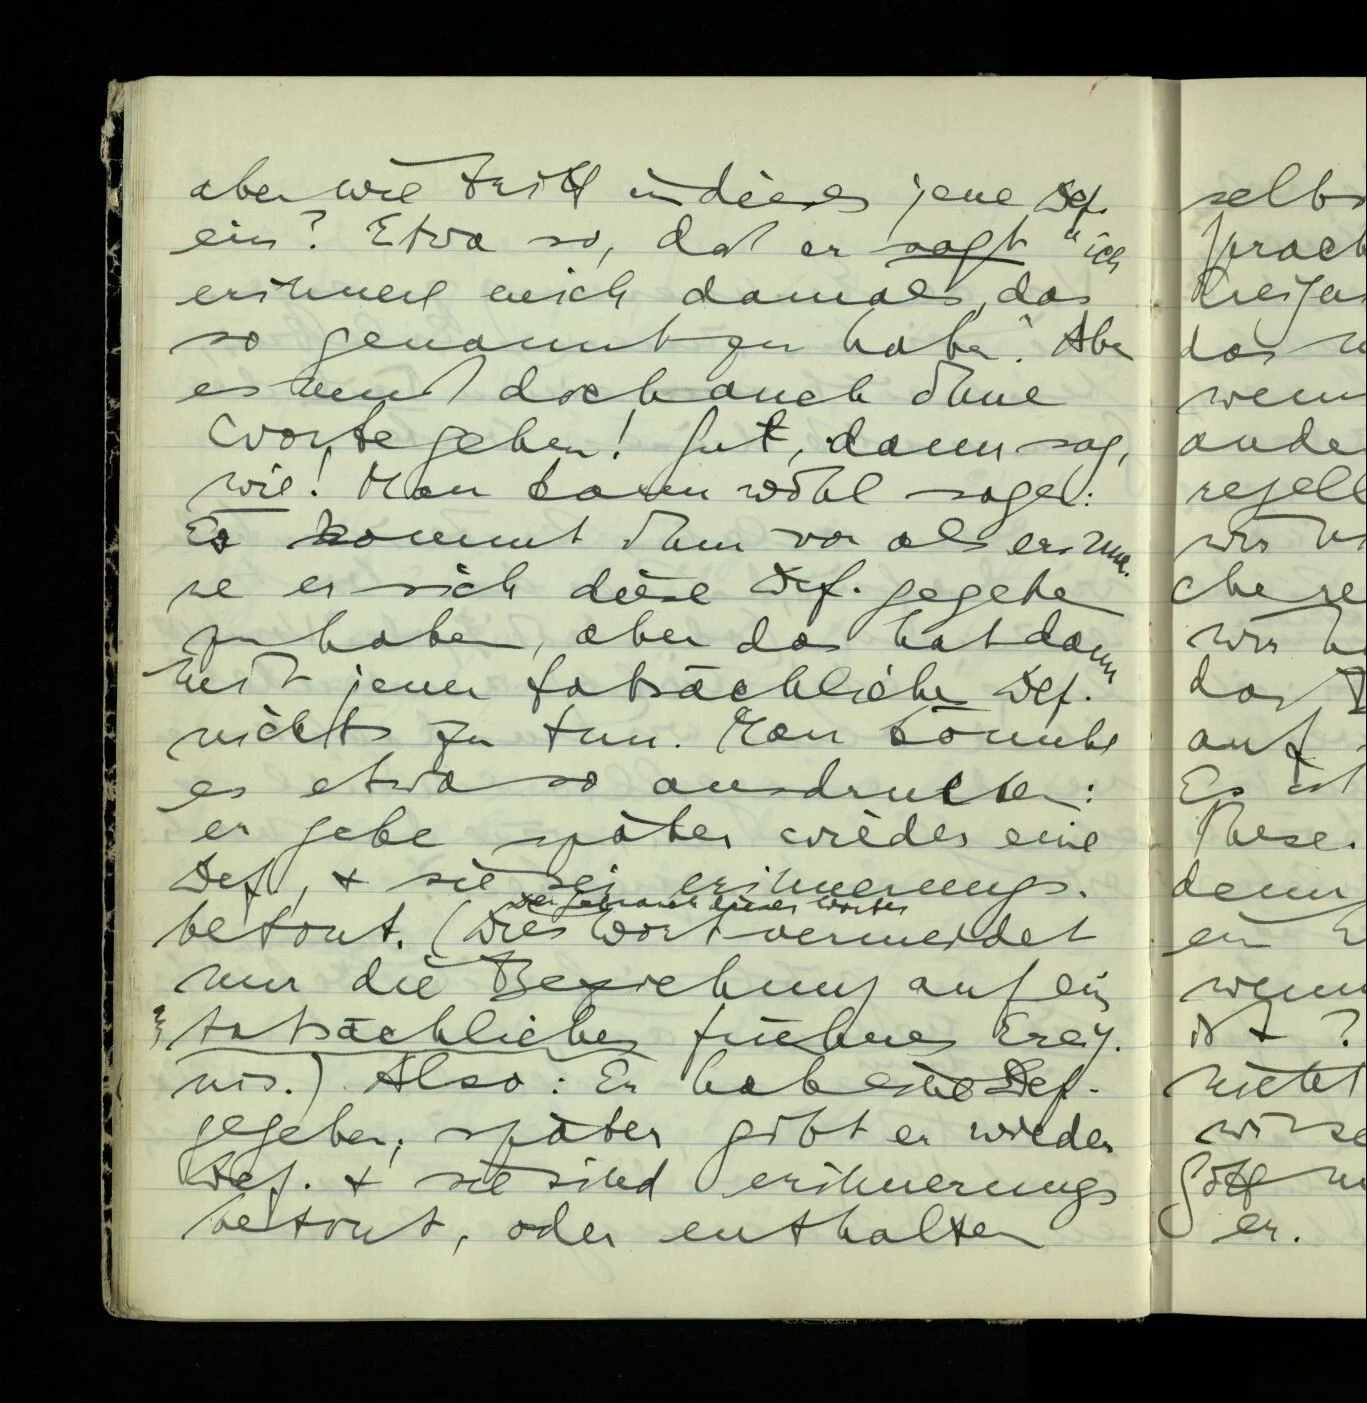 aber wie tritt in dieses jene Def.
ein? Etwa so, daß er sagt "ich
erinnere mich damals das
so genannt zu haben". Aber
es muß doch auch ohne
Worte gehen! Gut, dann sag,
wie! Man kann wohl sagen:
Es kommt ihm vor als erinne-
re er sich diese Def. gegeben
zu haben, aber das hat dann
mit jener tatsächlichen Def.
nichts zu tun. Man könnte
es etwa so ausdrucken:
er gebe später wieder eine
Def., + sie sei erinnerungs-
betont. (Dies Wort vermeidet
der Gebrauch dieses Wortes
nur die Beziehung auf ein
tatsächliches früheres Ereig-
nis.) Also: Er habe eine Def.
gegeben; später gibt er wieder
Def. + sie sind erinnerungs
betont, oder enthalten
selbs
sprach
das w
wenn
ande
wir h
che re
wir h
das
auf
Es ist
These.
denn
ein E
wenn
ist + ?
nicht
Gott
er.